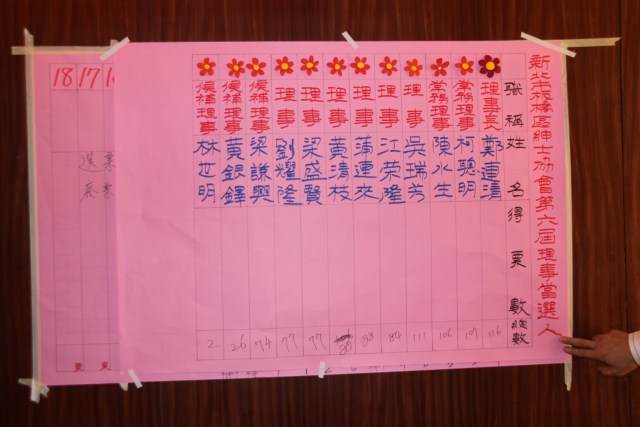 新北市板橋區紳士協會第六屆理事當選人
職稱 姓名 得票數 總數
理事長 鄭連清 116
常務理事 柯聰明 109
常務理事 陳水生 106
理事 吳瑞芳 111
理事 江榮隆 84
理事 蒲連來 88
理事 黃清枝 80
理事 梁盛賢 77
理事 劉耀隆 77
候補理事 梁謙興 74
候補理事 黃銀鐸 26
候補理事 林世明 2
17
18